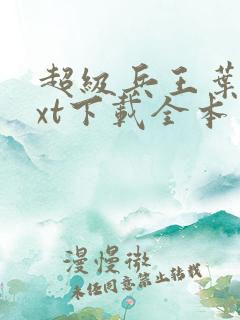 超級兵王葉
xt下載全本
漫慢微
未經同意禁止轉載